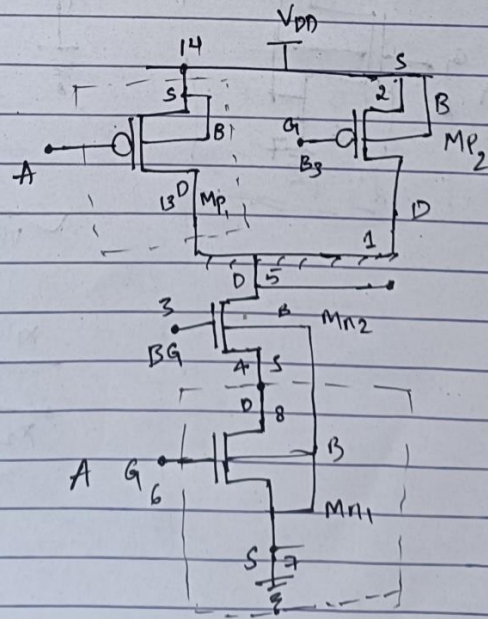 VDD
14
S
S
2
B
B
G
A
B3
MP2
D
13
MP1
D
1
D
5
3
B
Mn2
BG
4
S
D
8
B
A
G
6
Mn1
S
7